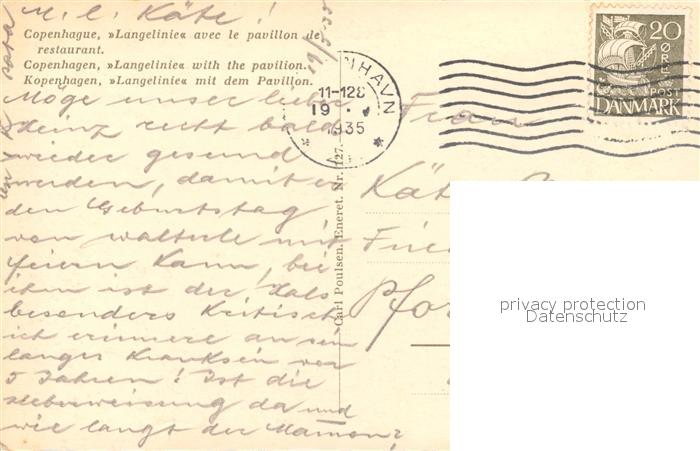 M. l. Käte!
19/5 35
Copenhague, »Langelinie« avec le pavillon de
restaurant.
Copenhagen, »Langelinie« with the pavilion.
Kopenhagen, »Langelinie« mit dem Pavillon.
Möge unser lieber
Heinz recht bald
wieder gesund
werden, damit er
den Geburtstag
von Walterle mit
feiern kann, bei
ihm ist der Hals
besonders kritisch
ich erinnere an sein
langes Kranksein vor
5 Jahren! Ist die
Ueberweisung da und
wie langt der Mamon?
Carl Poulsen. Eneret. Nr. 127.
HAVN
11-12
19
1935
20
ØRE
POST
DANMARK
Frau
Kät
Frie
Pfor
privacy protection
Datenschutz